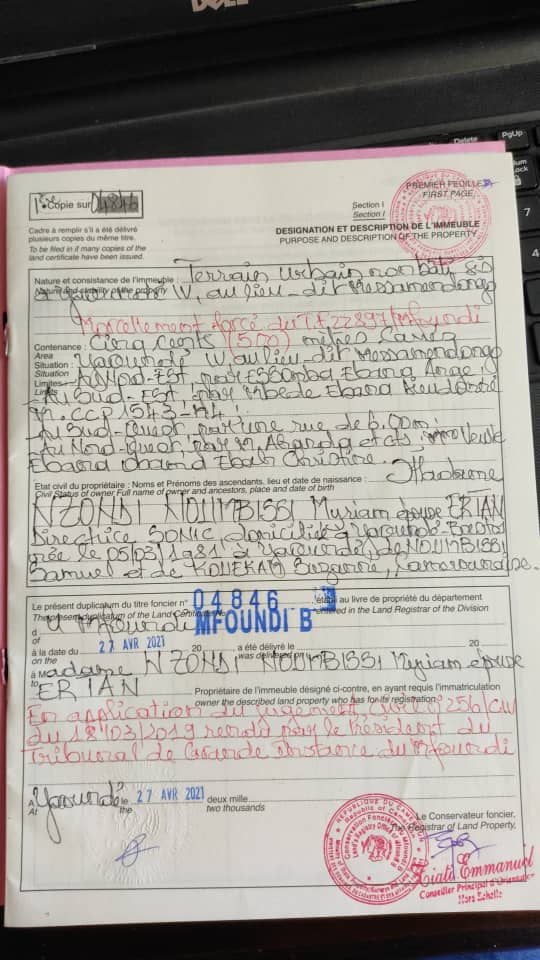 DELL
Delete
PgUp
Num
Lock
7
4
Copie sur
PREMIER FEUILLET
FIRST PAGE
Section I
Section I
Cadre à remplir s'il a été délivré
plusieurs copies du même titre.
To be filed in if many copies of the
land certificate have been issued.
DESIGNATION ET DESCRIPTION DE L'IMMEUBLE
PURPOSE AND DESCRIPTION OF THE PROPERTY
Nature et consistance de l'immeuble : Terrain Urbain non bâti sis
W, au lieu-dit Messamendongo
Morcellement forcé du TF 22897/Mfoundi
Contenance : Cinq Cents (500) mètres Carrés
Area
Situation : Yaoundé W au lieu-dit Messamendongo
Situation
Limites : Au Nord-Est, par ESSOMBA Ebana Ange
Limits
Au Sud-Est, par Mbede Ebana
CCP 1543-
Au Sud-Ouest par une rue de
Au Nord-Ouest, par Abanda et cts, Veuve
Ebana Christine.
Etat civil du propriétaire : Noms et Prénoms des ascendants, lieu et date de naissance : Madame
Civil Status of owner Full name of owner and ancestors, place and date of birth
NZONDI NOUMBISSI Myriam épouse ERIAN
Directrice SONIC, domiciliée à Yaoundé-
née le 05/03/1981 à Yaoundé, de NOUMBISSI
Samuel et de Suzanne, Camerounaise.
Le présent duplicatum du titre foncier n° 04846 établi au livre de propriété du département
The present duplicatum of the Land Certificate N° entered in the Land Registrar of the Division
du Mfoundi MFOUNDI B
of
à la date du 27 AVR 2021 20 a été délivré le 20
on the was delivered on
à Madame NZONDI NOUMBISSI Myriam épouse
to
ERIAN Propriétaire de l'immeuble désigné ci-contre, en ayant requis l'immatriculation
owner the described land property who has for its registration
En application du jugement civil n° 256/civ
du 18/03/2019 rendu par le Président du
Tribunal de Grande Instance du Mfoundi
A Yaoundé le 27 AVR 2021 deux mille
At the two thousands
Le Conservateur foncier,
The Registrar of Land Property,
REPUBLIQUE DU CAMEROUN
Republic of Cameroon
Conservation Foncière
Emmanuel
Conseiller Principal d'Orientation
Hors Echelle